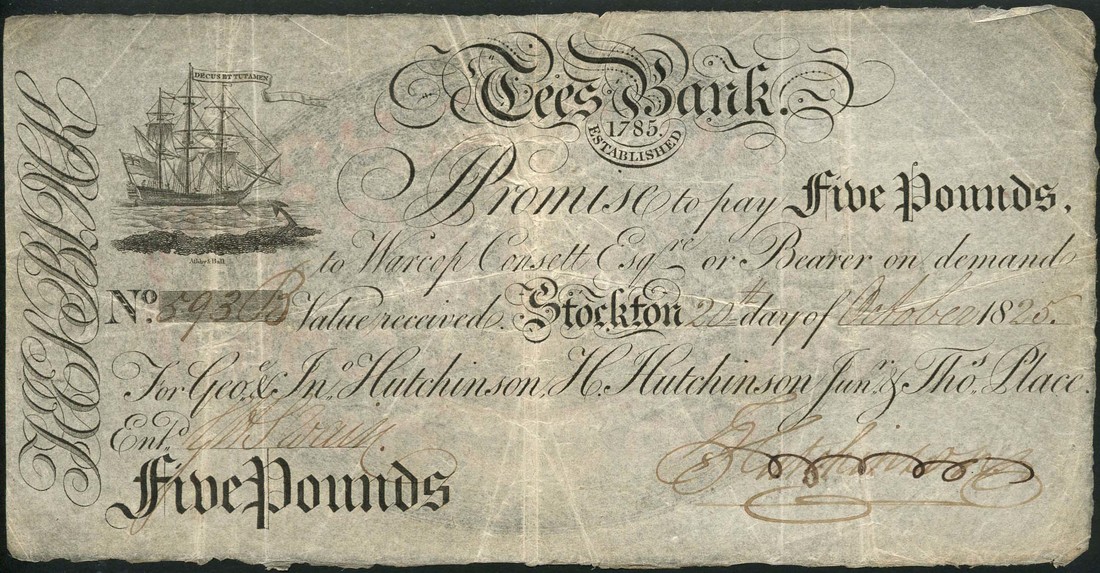 Tees Bank.
1785.
ESTABLISHED
DECUS ET TUTAMEN
I Promise to pay Five Pounds,
to Warcop Consett Esqre. or Bearer on demand
No. 593 B Value received. Stockton 20th day of October 1825.
For Geo. & Jno. Hutchinson, H. Hutchinson Junr. & Thos. Place.
Entd.
Five Pounds
Hutchinson